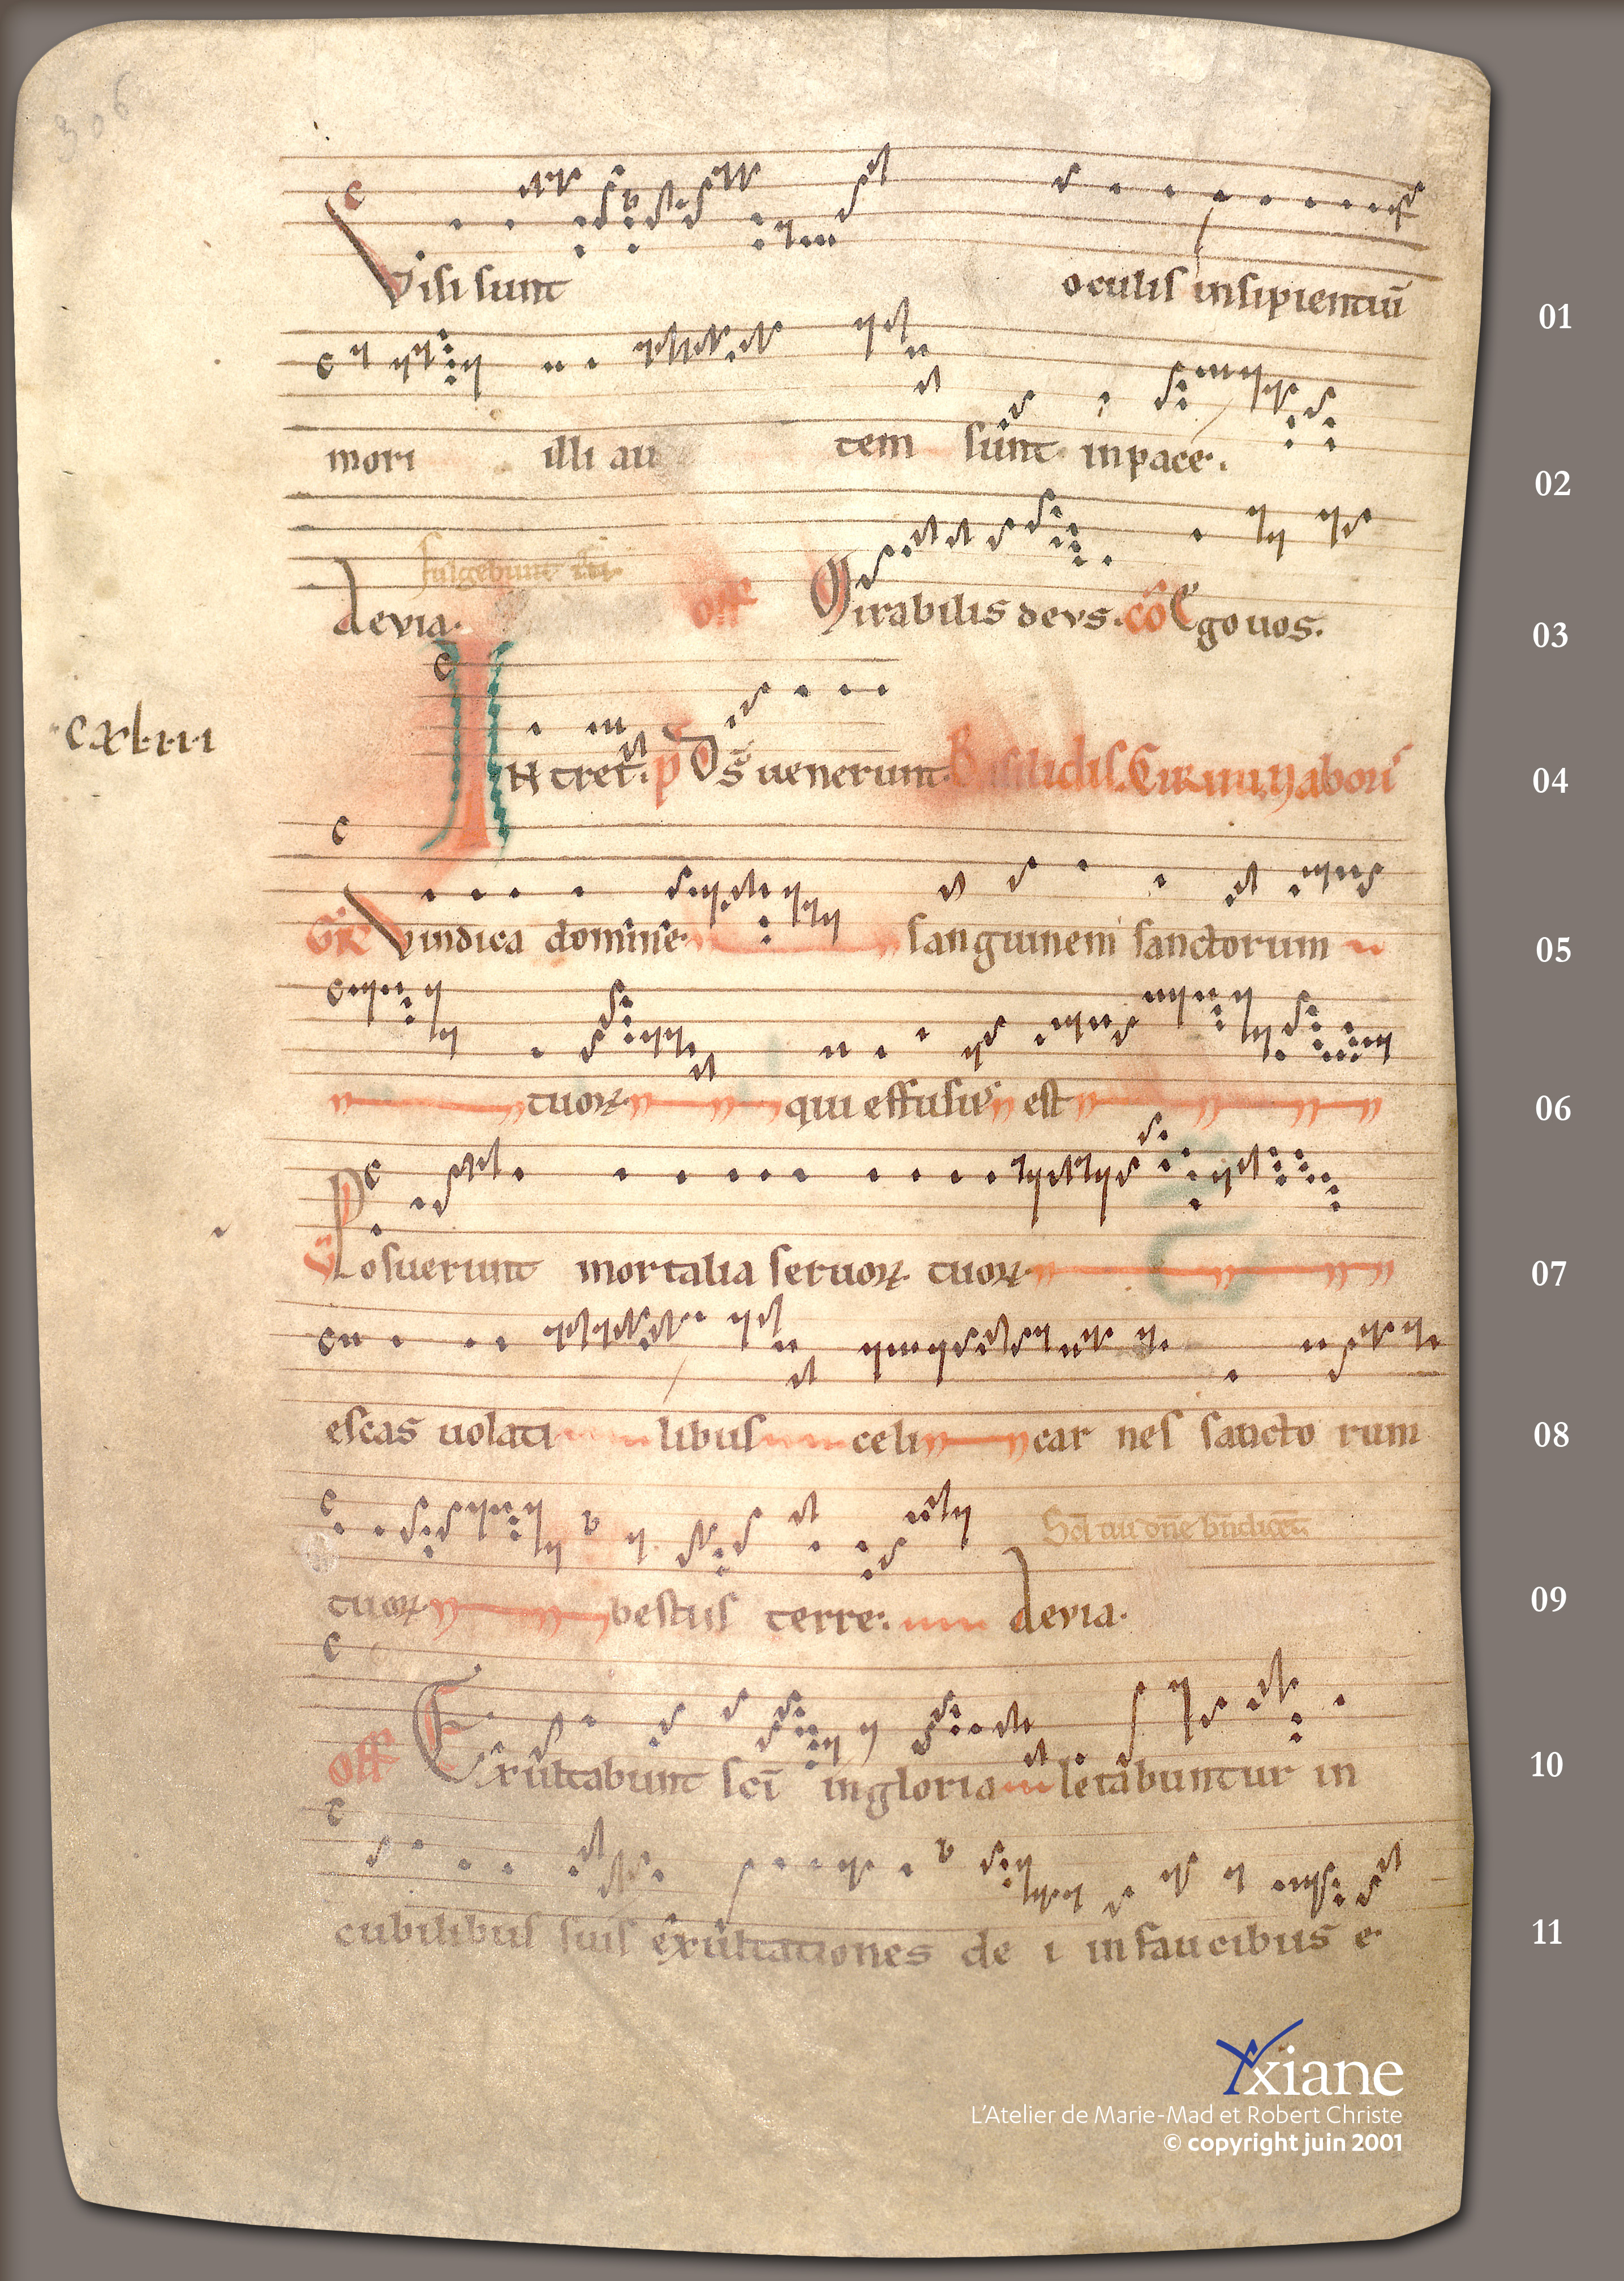 306
Visi sunt oculis insipientiū 01
mori illi au tem sunt inpace. 02
fulgebunt
devia. off Mirabilis devs. cō Ego uos. 03
cxlııı
INtret. p Ds̄ uenerunt. Basilidis. Cirini, Nabori 04
Gr̄ Vindica domine sanguinem sanctorum 05
tuoꝝ qui effusus est 06
V̄ Posuerunt mortalia seruoꝝ tuoꝝ 07
escas uolati libus celi car nes sancto rum 08
Sc̄i tui dn̄e bn̄dicen̄
tuoꝝ bestiis terre. devia. 09
off Exultabunt sc̄i ingloria letabuntur in 10
cubilibus suis exultationes de i infaucibus e 11
Xxiane
L'Atelier de Marie-Mad et Robert Christe
© copyright juin 2001